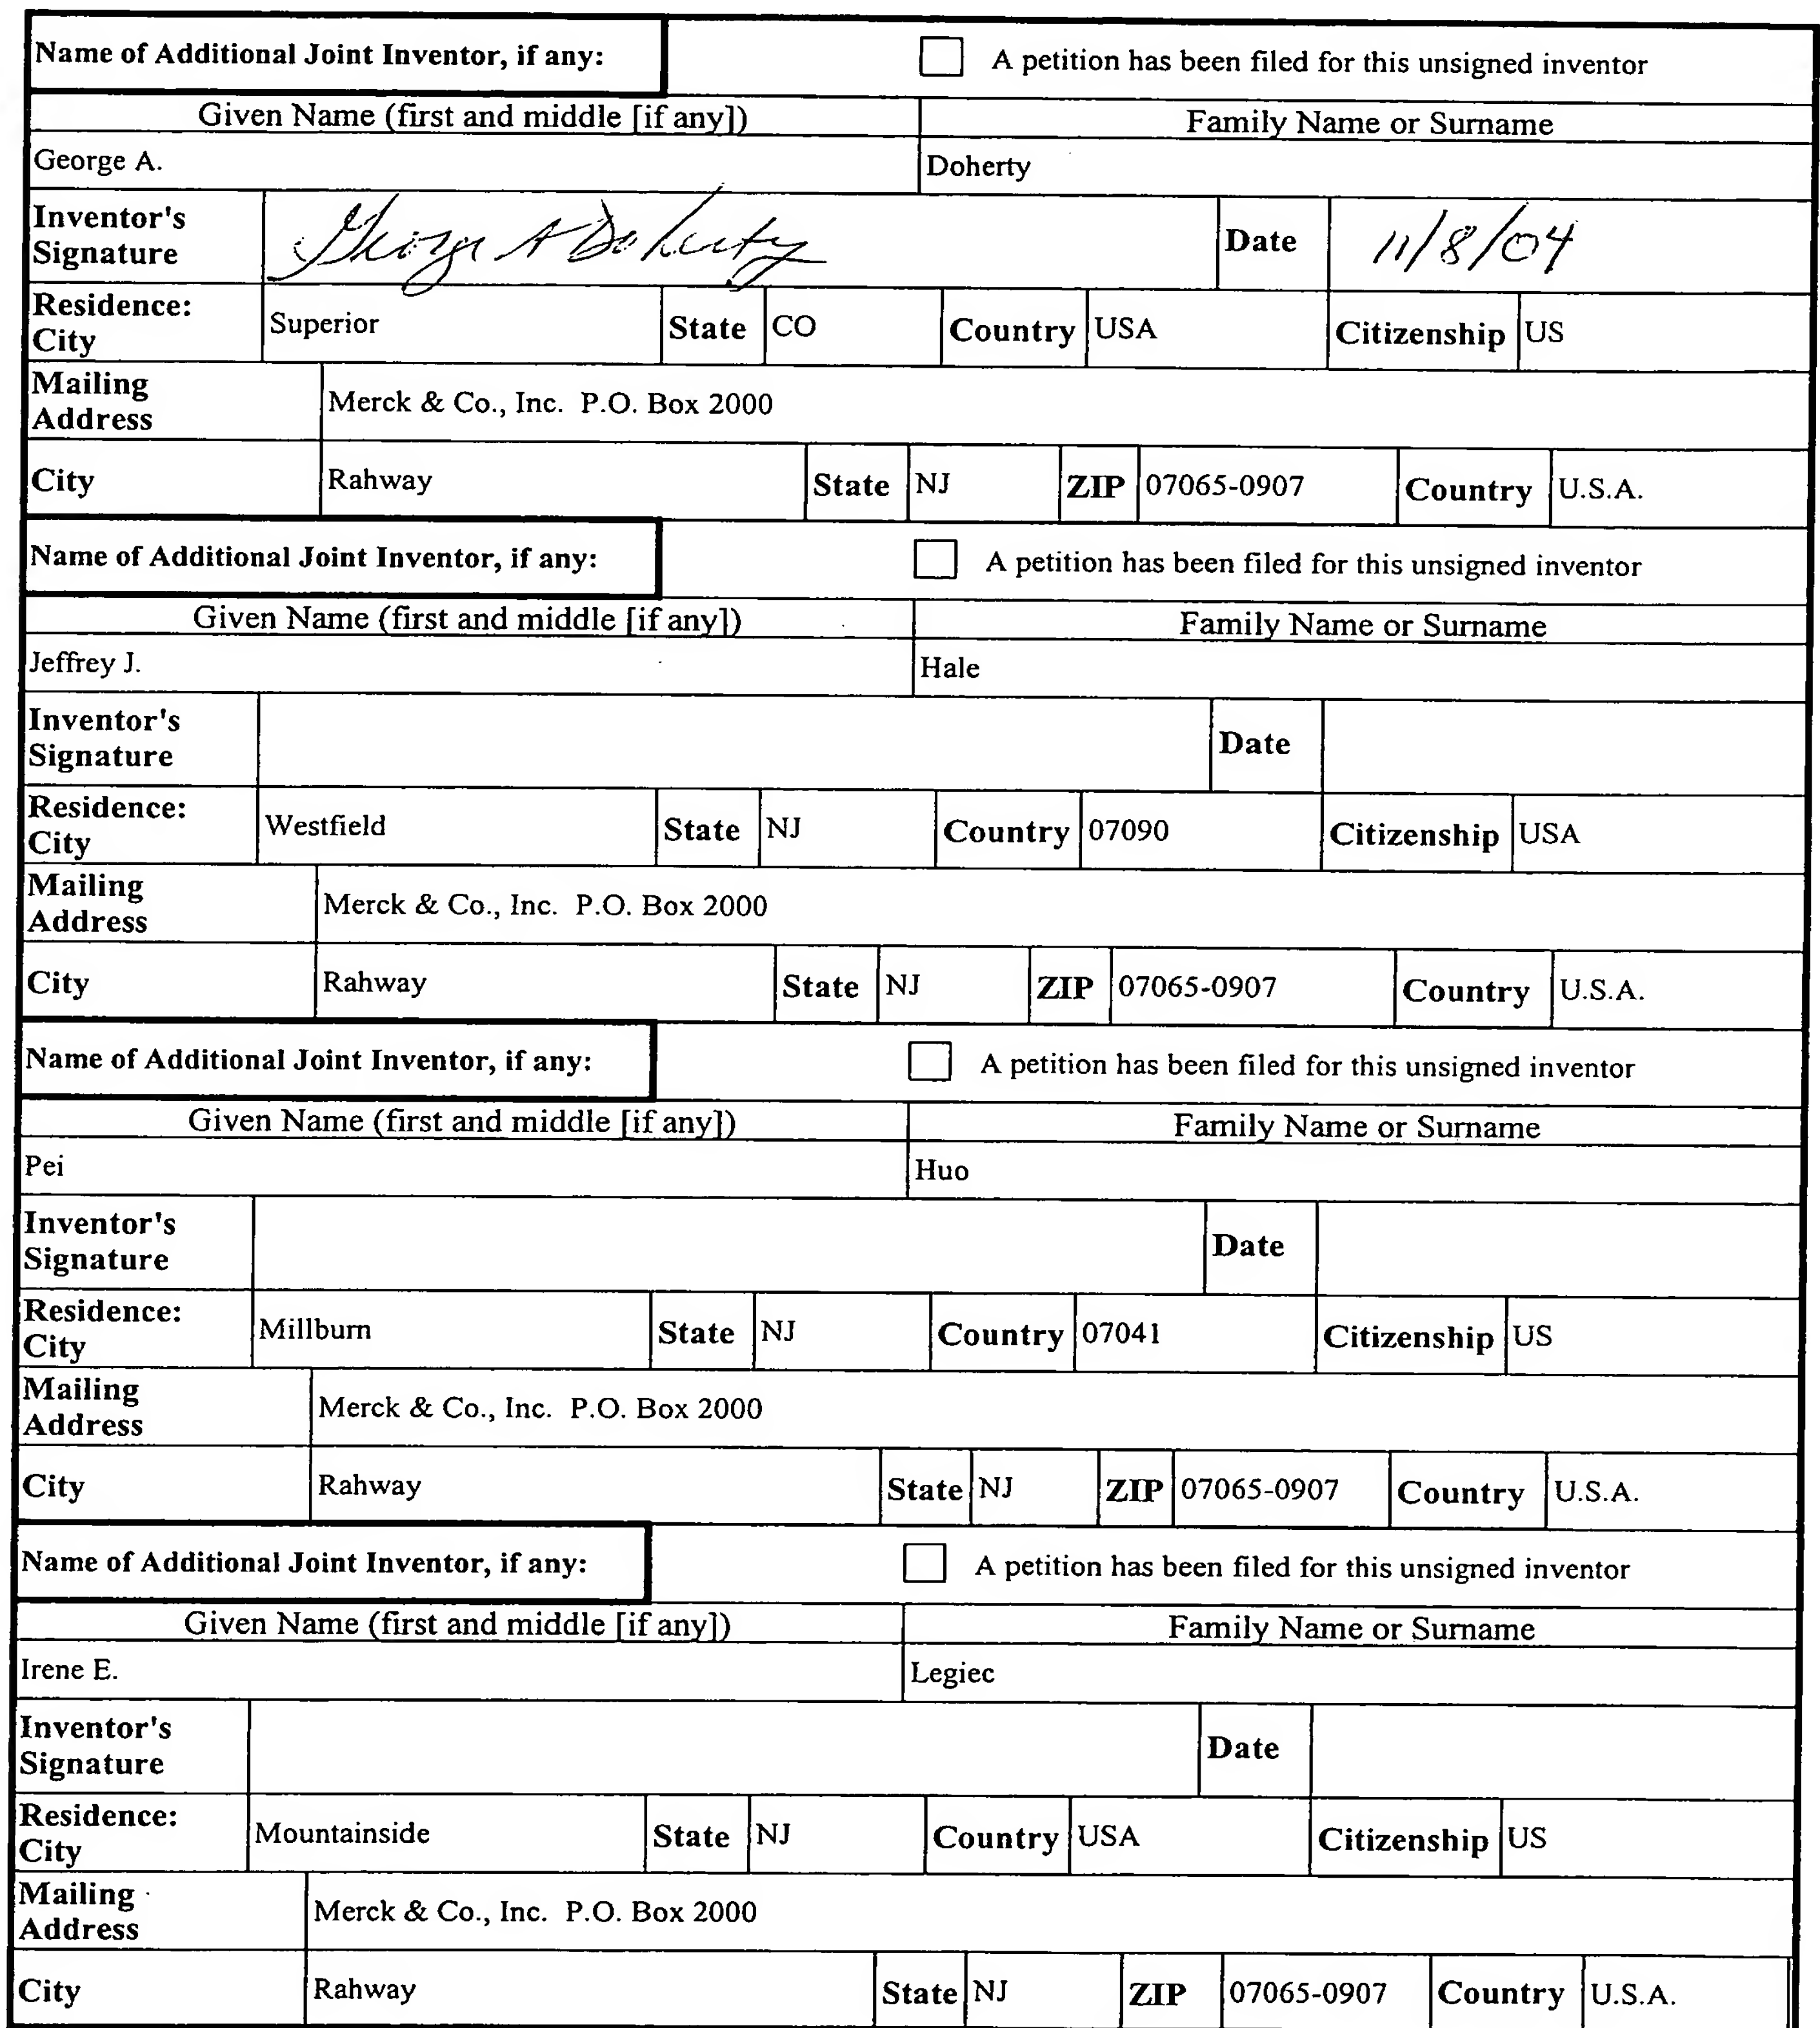 Name of Additional Joint Inventor, if any: A petition has been filed for this unsigned inventor
Given Name (first and middle [if any]) Family Name or Surname
George A. Doherty
Inventor's Signature George A Doherty Date 11/8/04
Residence: City Superior State CO Country USA Citizenship US
Mailing Address Merck & Co., Inc. P.O. Box 2000
City Rahway State NJ ZIP 07065-0907 Country U.S.A.
Name of Additional Joint Inventor, if any: A petition has been filed for this unsigned inventor
Given Name (first and middle [if any]) Family Name or Surname
Jeffrey J. Hale
Inventor's Signature Date
Residence: City Westfield State NJ Country 07090 Citizenship USA
Mailing Address Merck & Co., Inc. P.O. Box 2000
City Rahway State NJ ZIP 07065-0907 Country U.S.A.
Name of Additional Joint Inventor, if any: A petition has been filed for this unsigned inventor
Given Name (first and middle [if any]) Family Name or Surname
Pei Huo
Inventor's Signature Date
Residence: City Millburn State NJ Country 07041 Citizenship US
Mailing Address Merck & Co., Inc. P.O. Box 2000
City Rahway State NJ ZIP 07065-0907 Country U.S.A.
Name of Additional Joint Inventor, if any: A petition has been filed for this unsigned inventor
Given Name (first and middle [if any]) Family Name or Surname
Irene E. Legiec
Inventor's Signature Date
Residence: City Mountainside State NJ Country USA Citizenship US
Mailing Address Merck & Co., Inc. P.O. Box 2000
City Rahway State NJ ZIP 07065-0907 Country U.S.A.